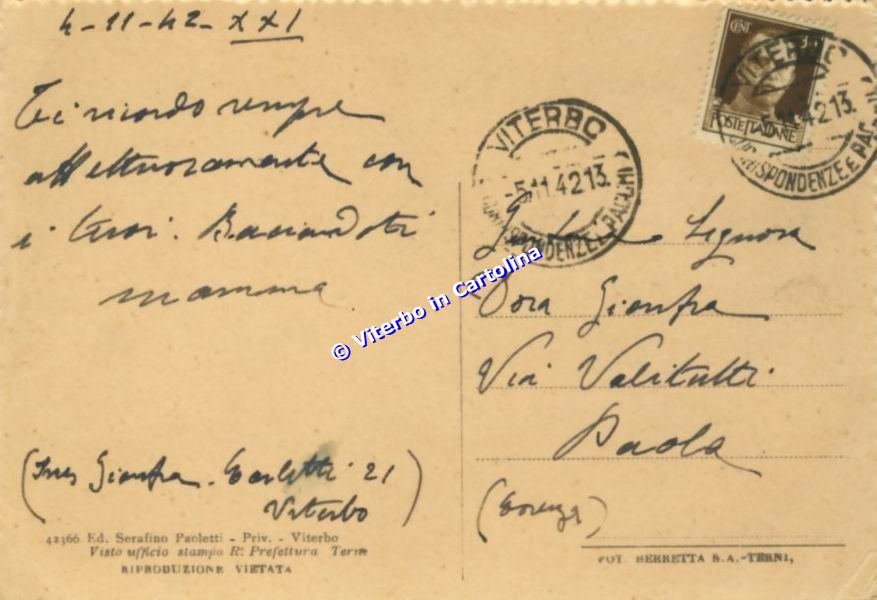 4-11-42-XXI
Ti ricordo sempre
affettuosamente con
i tuoi. Baciandoti
mamma
(Ines Gianfra - Carletti 21
Viterbo)
42366 Ed. Serafino Paoletti - Priv. - Viterbo
Visto ufficio stampa R. Prefettura Terni
RIPRODUZIONE VIETATA
CENT
POSTE ITALIANE
VITERBO
-5.11.42 13.
CORRISPONDENZE E PACCHI
VITERBO
5.11.42 13.
CORRISPONDENZE E PACCHI
Signora
Dora Gianfra
Via Valitutti
Paola
(Cosenza)
FOT. BERRETTA S.A.-TERNI,
© Viterbo in Cartolina